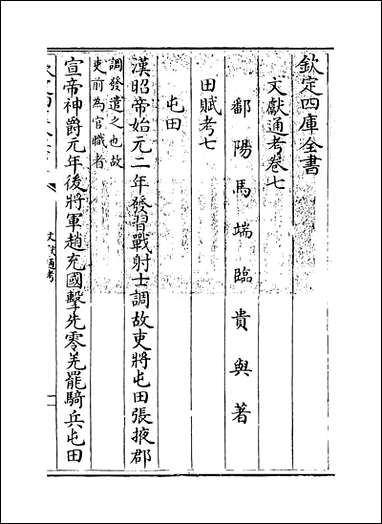 欽定四庫全書
文獻通考卷七
鄱陽馬端臨貴與著
田賦考七
屯田
漢昭帝始元二年發習戰射士調故吏將屯田張掖郡
調發遣之也故
吏前為官職者
宣帝神爵元年後將軍趙充國擊先零羌罷騎兵屯田
文獻通考